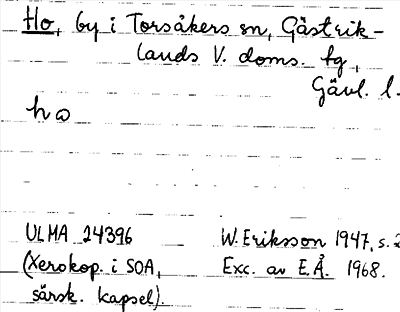 Ho, by i Torsåkers sn, Gästrik-
lands V. doms. tg,
Gävl. l.
ho
ULMA 24396 W. Eriksson 1947, s. 2
(Xerokop. i SOA, Exc. av E.Å. 1968.
särsk. kapsel).